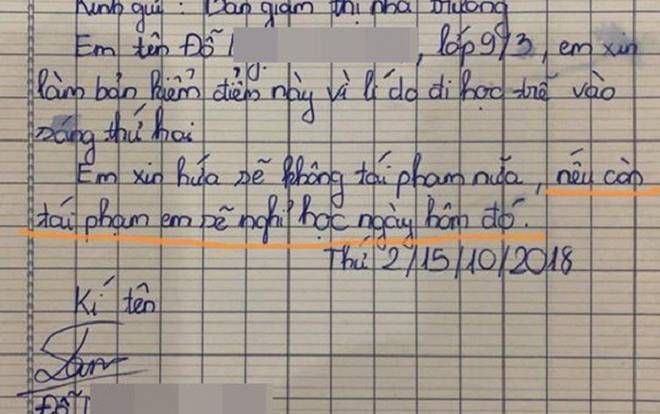 Kính gửi: Ban giám thị nhà trường
Em tên Đỗ , lớp 9/3, em xin
làm bản kiểm điểm này vì lí do đi học trễ vào
sáng thứ hai
Em xin hứa sẽ không tái phạm nữa, nếu còn
tái phạm em sẽ nghỉ học ngày hôm đó.
Thứ 2/15/10/2018
Kí tên
Đỗ